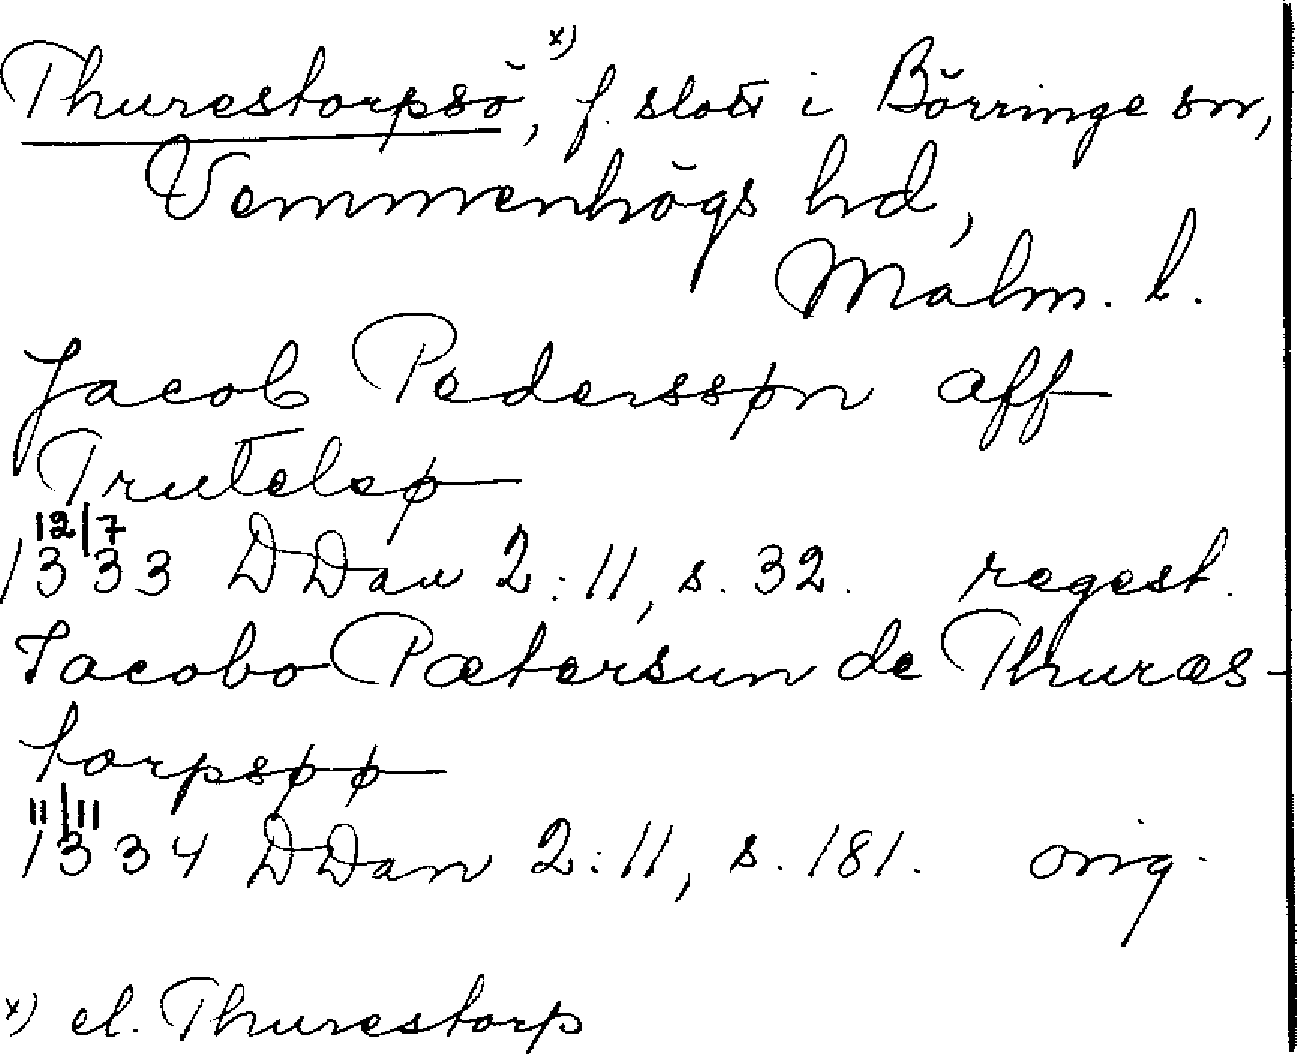 Thurestorpsö, x) f. slott i Börringe sn,
Vemmenhögs hd,
Malm. l.
Jacob Pederssøn aff
Trutelsø
12/7
1333 DDan 2:11, s. 32. regest.
Jacobo Pætersun de Thuræs-
torpsøø
11/11
1334 DDan 2:11, s. 181. orig.
x) el. Thurestorp